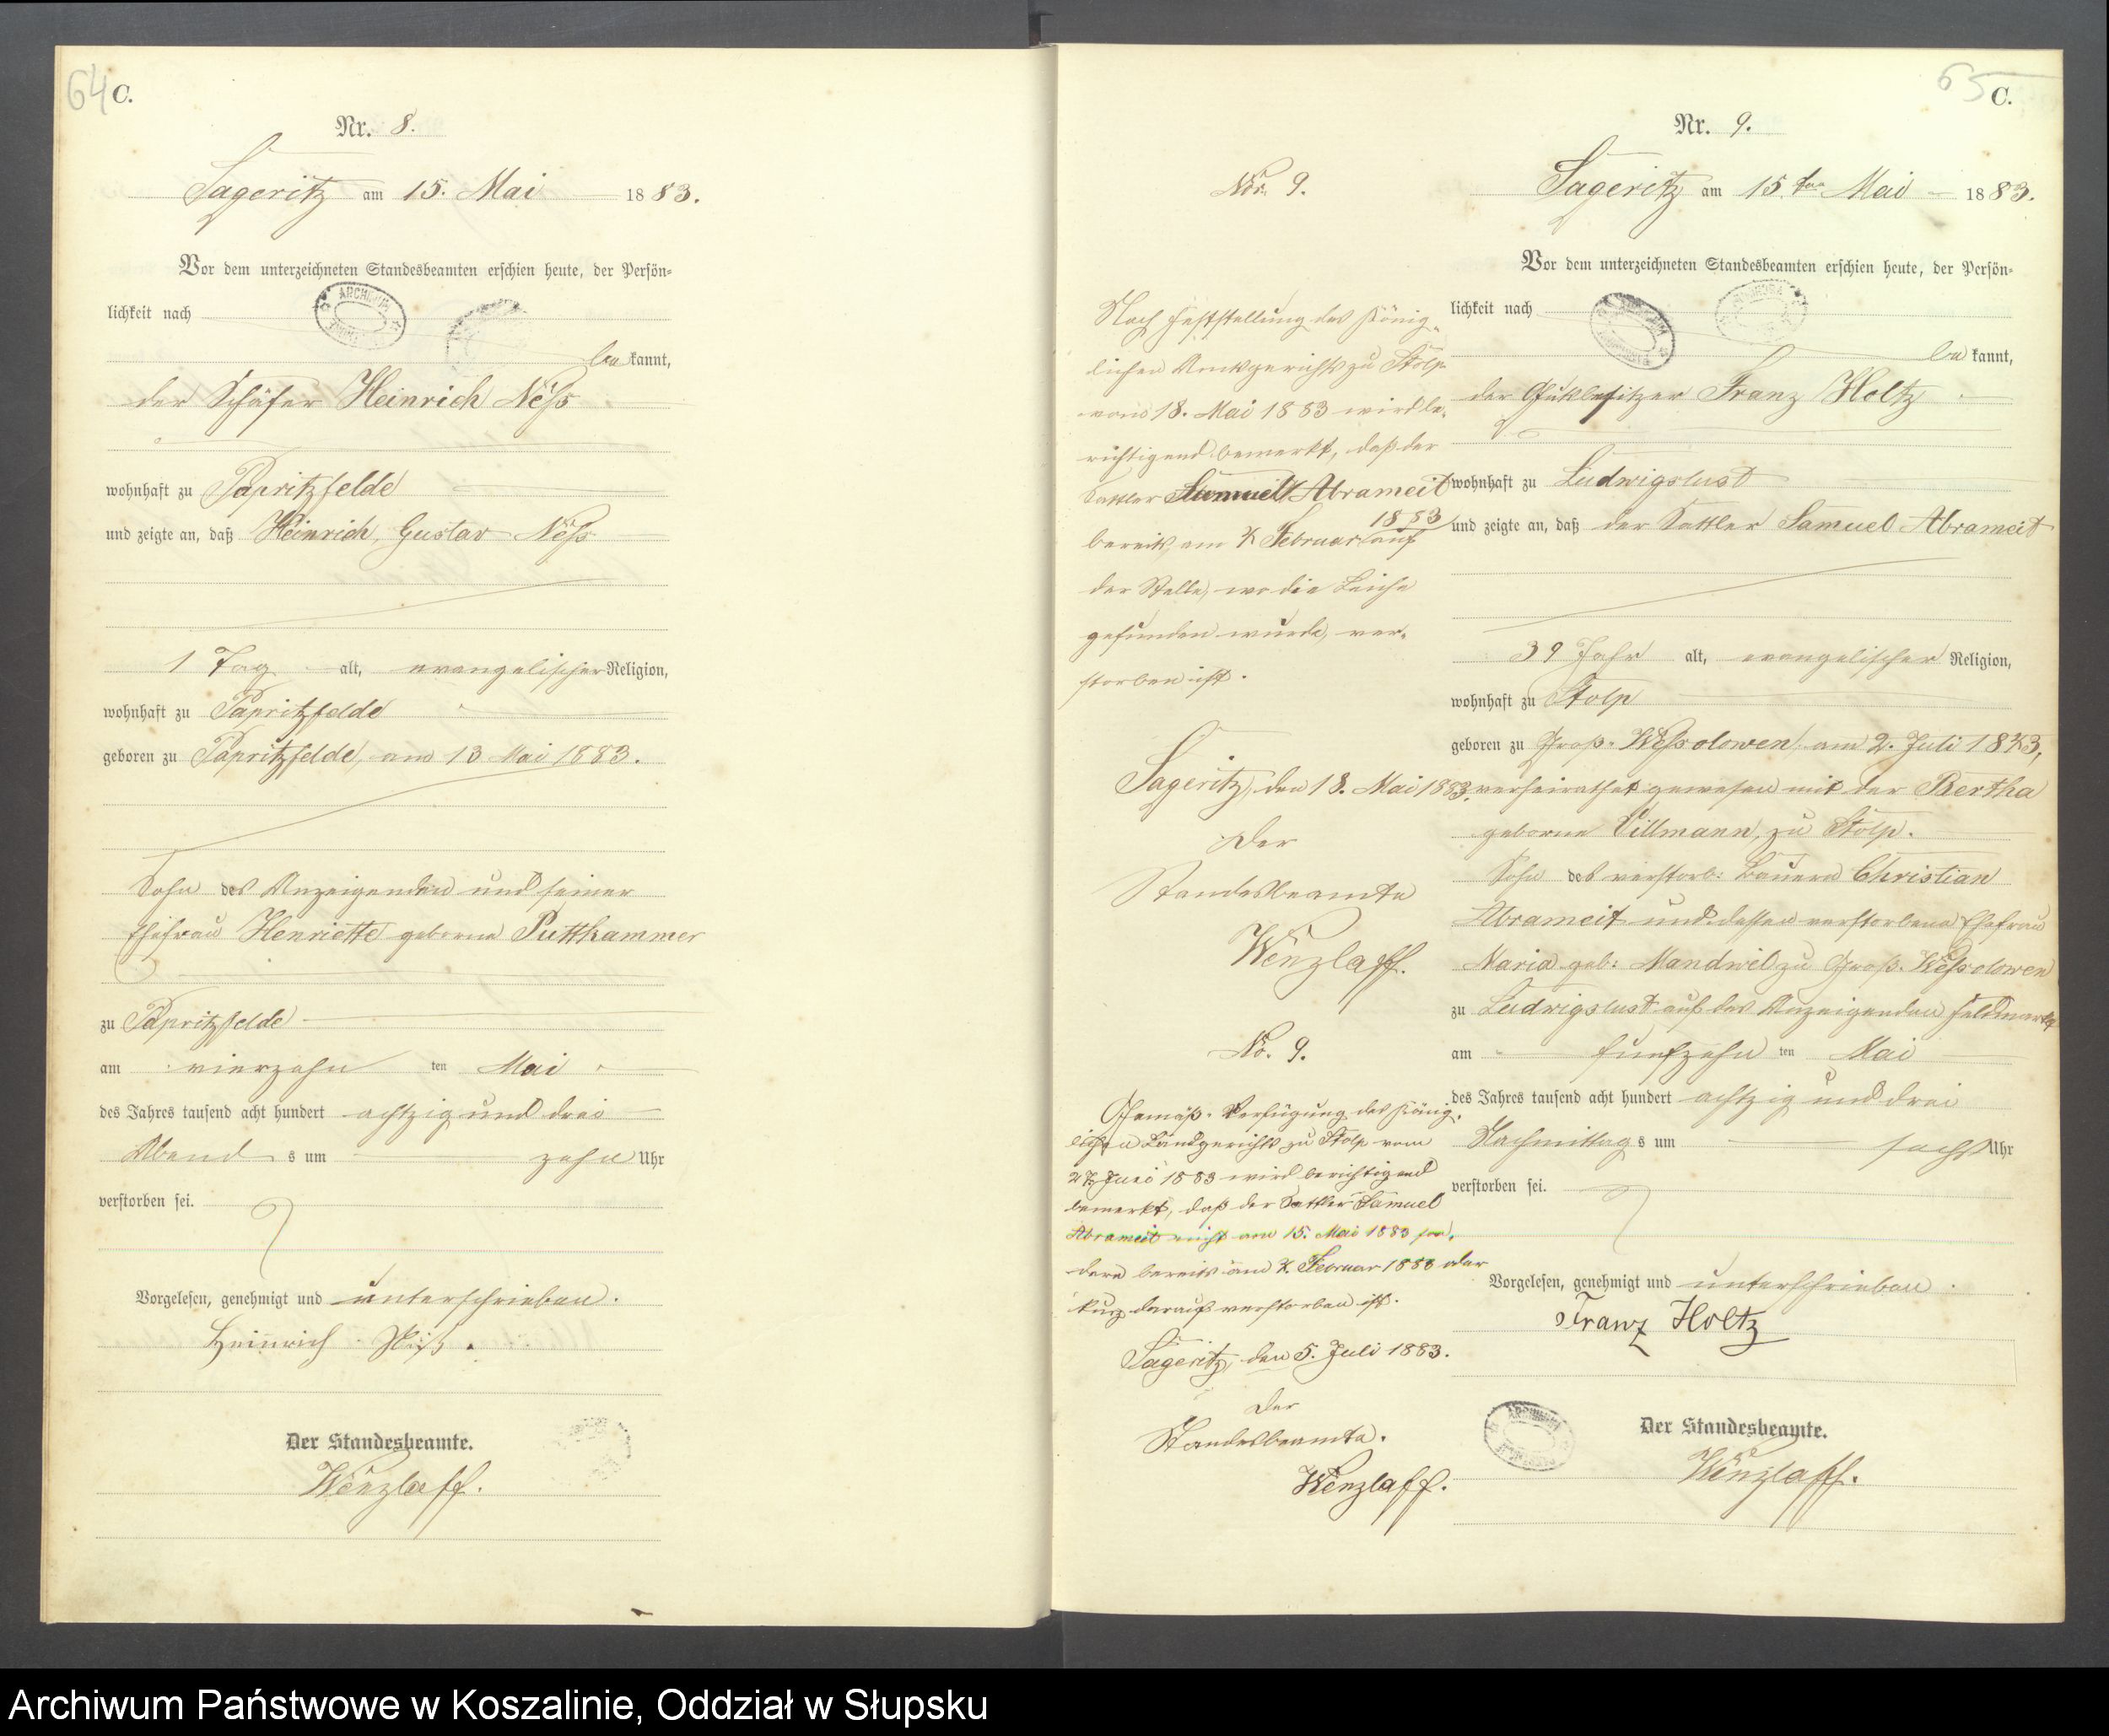 64 C.
Nr. 8.
Sageritz am 15. Mai 1883.
Vor dem unterzeichneten Standesbeamten erschien heute, der Persön-
lichkeit nach
bekannt,
der Schäfer Heinrich Neß
wohnhaft zu Papritzfelde
und zeigte an, daß Heinrich Gustav Neß
1 Tag alt, evangelischer Religion,
wohnhaft zu Papritzfelde
geboren zu Papritzfelde, am 13 Mai 1883.
Sohn des Anzeigenden und seiner
Ehefrau Henriette geborne Puttkammer
zu Papritzfelde
am vierzehn ten Mai
des Jahres tausend acht hundert achtzig und drei
Abend s um zehn Uhr
verstorben sei.
Vorgelesen, genehmigt und unterschrieben.
Heinrich Neß.
Der Standesbeamte.
Wenzlaff.
65 C.
Nr. 9.
Sageritz am 15. ten Mai 1883.
Vor dem unterzeichneten Standesbeamten erschien heute, der Persön-
lichkeit nach
bekannt,
der Gutsbesitzer Franz Holtz
wohnhaft zu Ludwigslust
und zeigte an, daß der Sattler Samuel Abrameit
39 Jahr alt, evangelischer Religion,
wohnhaft zu Stolp
geboren zu Groß-Weßolowen, am 2. Juli 1843,
verheirathet gewesen mit der Bertha
geborne Villmann, zu Stolp.
Sohn des verstorb: Bauern Christian
Abrameit und dessen verstorbene Ehefrau
Maria geb: Mandwil zu Groß-Weßolowen
zu Ludwigslust auf des Anzeigenden Feldmark
am fünfzehn ten Mai
des Jahres tausend acht hundert achtzig und drei
Nachmittag s um sechs Uhr
verstorben sei.
Vorgelesen, genehmigt und unterschrieben.
Franz Holtz
Der Standesbeamte.
Wenzlaff.
Nro. 9.
Nach Feststellung des König-
lichen Amtsgerichts zu Stolp
vom 18. Mai 1883 wird be-
richtigend bemerkt, daß der
Sattler Samuel Abrameit
bereits am 4 Februar 1883 auf
der Stelle, wo die Leiche
gefunden wurde, ver-
storben ist.
Sageritz, den 18. Mai 1883.
Der
Standesbeamte
Wenzlaff.
No. 9.
Gemäß Verfügung des König-
lichen Landgerichts zu Stolp vom
27. Juni 1883 wird berichtigend
bemerkt, daß der Sattler Samuel
Abrameit nicht am 15. Mai 1883 son-
dern bereits am 4. Februar 1883 oder
kurz darauf verstorben ist.
Sageritz, den 5. Juli 1883.
Der
Standesbeamte.
Wenzlaff.
Archiwum Państwowe w Koszalinie, Oddział w Słupsku